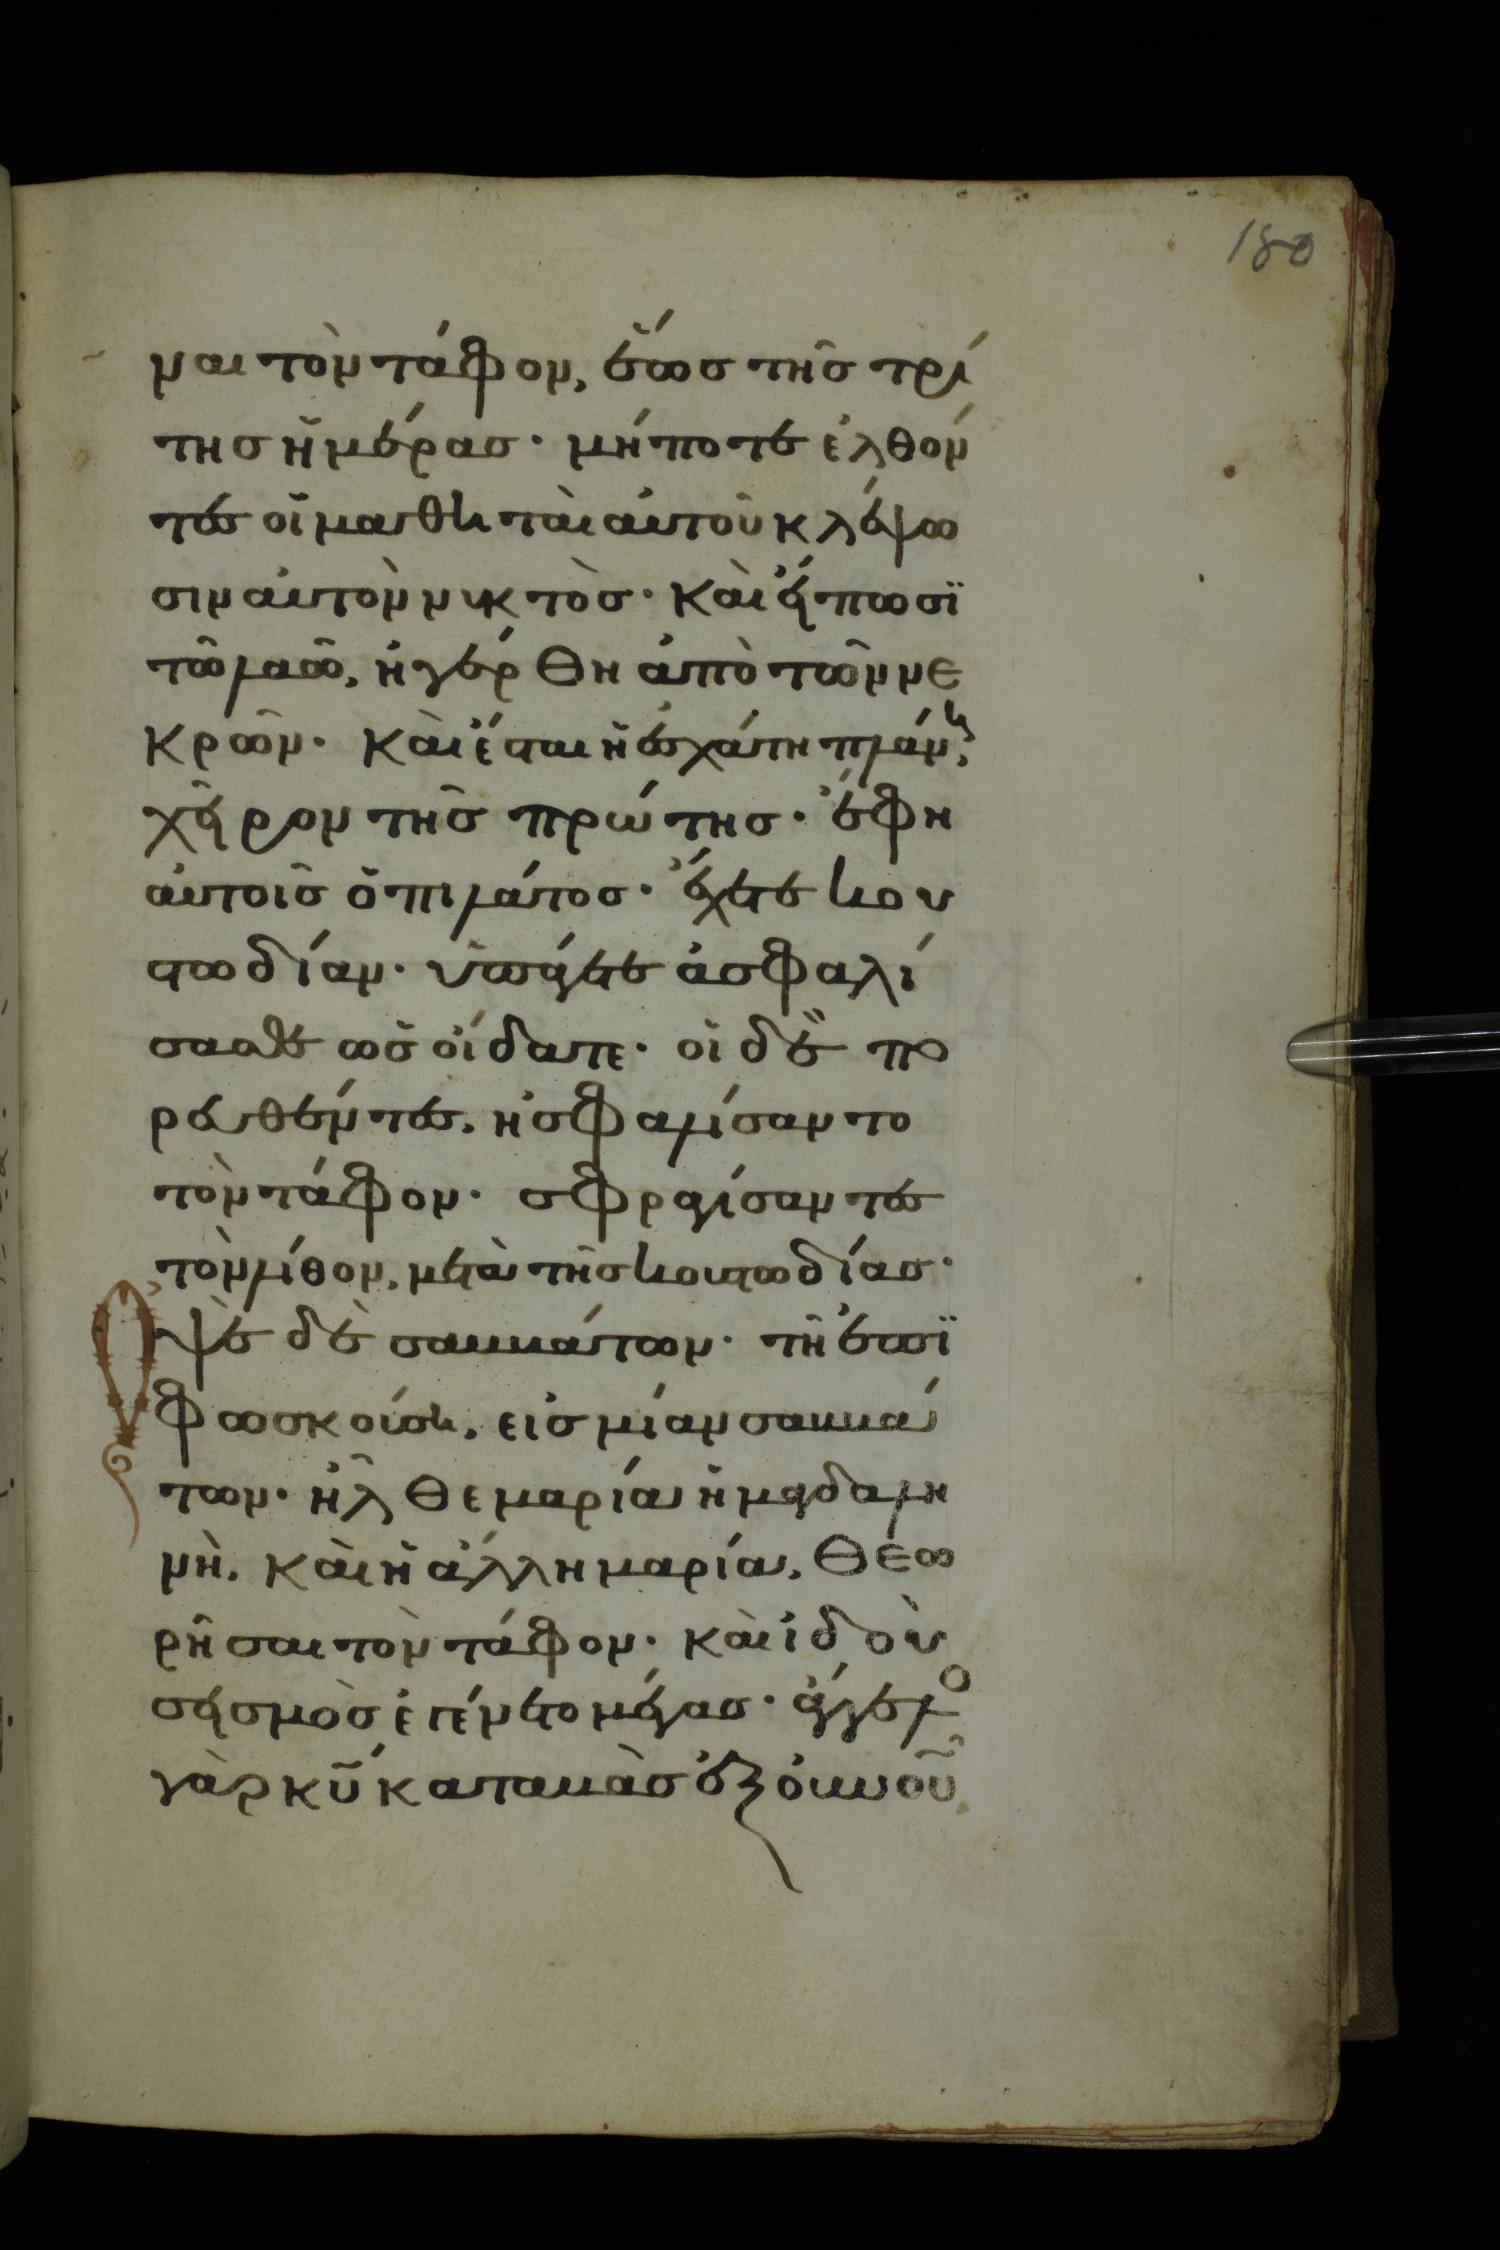 180
ναι τὸν τάφον, ἕως τῆς τρί
της ἡμέρας· μήποτε ἐλθόν
τες οἱ μαθηταὶ αὐτοῦ κλέψω
σιν αὐτὸν νυκτὸς· καὶ εἴπωσϊ
τῶ λαῶ, ἠγέρθη ἀπὸ τῶν νε
κρῶν· καὶ ἔσται ἡ ἐσχάτη πλάνη,
χεῖρον τῆς πρώτης· ἔφη
αὐτοῖς ὁ πιλάτος· ἔχετε κου
στωδίαν· ὑπάγετε ἀσφαλί
σασθε ὡς οἴδατε· οἱ δὲ πο
ρευθέντες, ἠσφαλίσαντο
τὸν τάφον· σφραγίσαντες
τὸν λίθον, μετὰ τῆς κουστωδίας·
Ὀψὲ δὲ σαββάτων· τῆ ἐπϊ
φωσκούση, εἰς μίαν σαββά
των· ἦλθε μαρία ἡ μαγδαλη
νὴ, καὶ ἡ ἄλλη μαρία, θεω
ρῆσαι τὸν τάφον· καὶ ἰδοὺ
σεισμὸς ἐγένετο μέγας· ἄγγελο
γὰρ κῦ καταβὰς ἐξ οὐνοῦ,